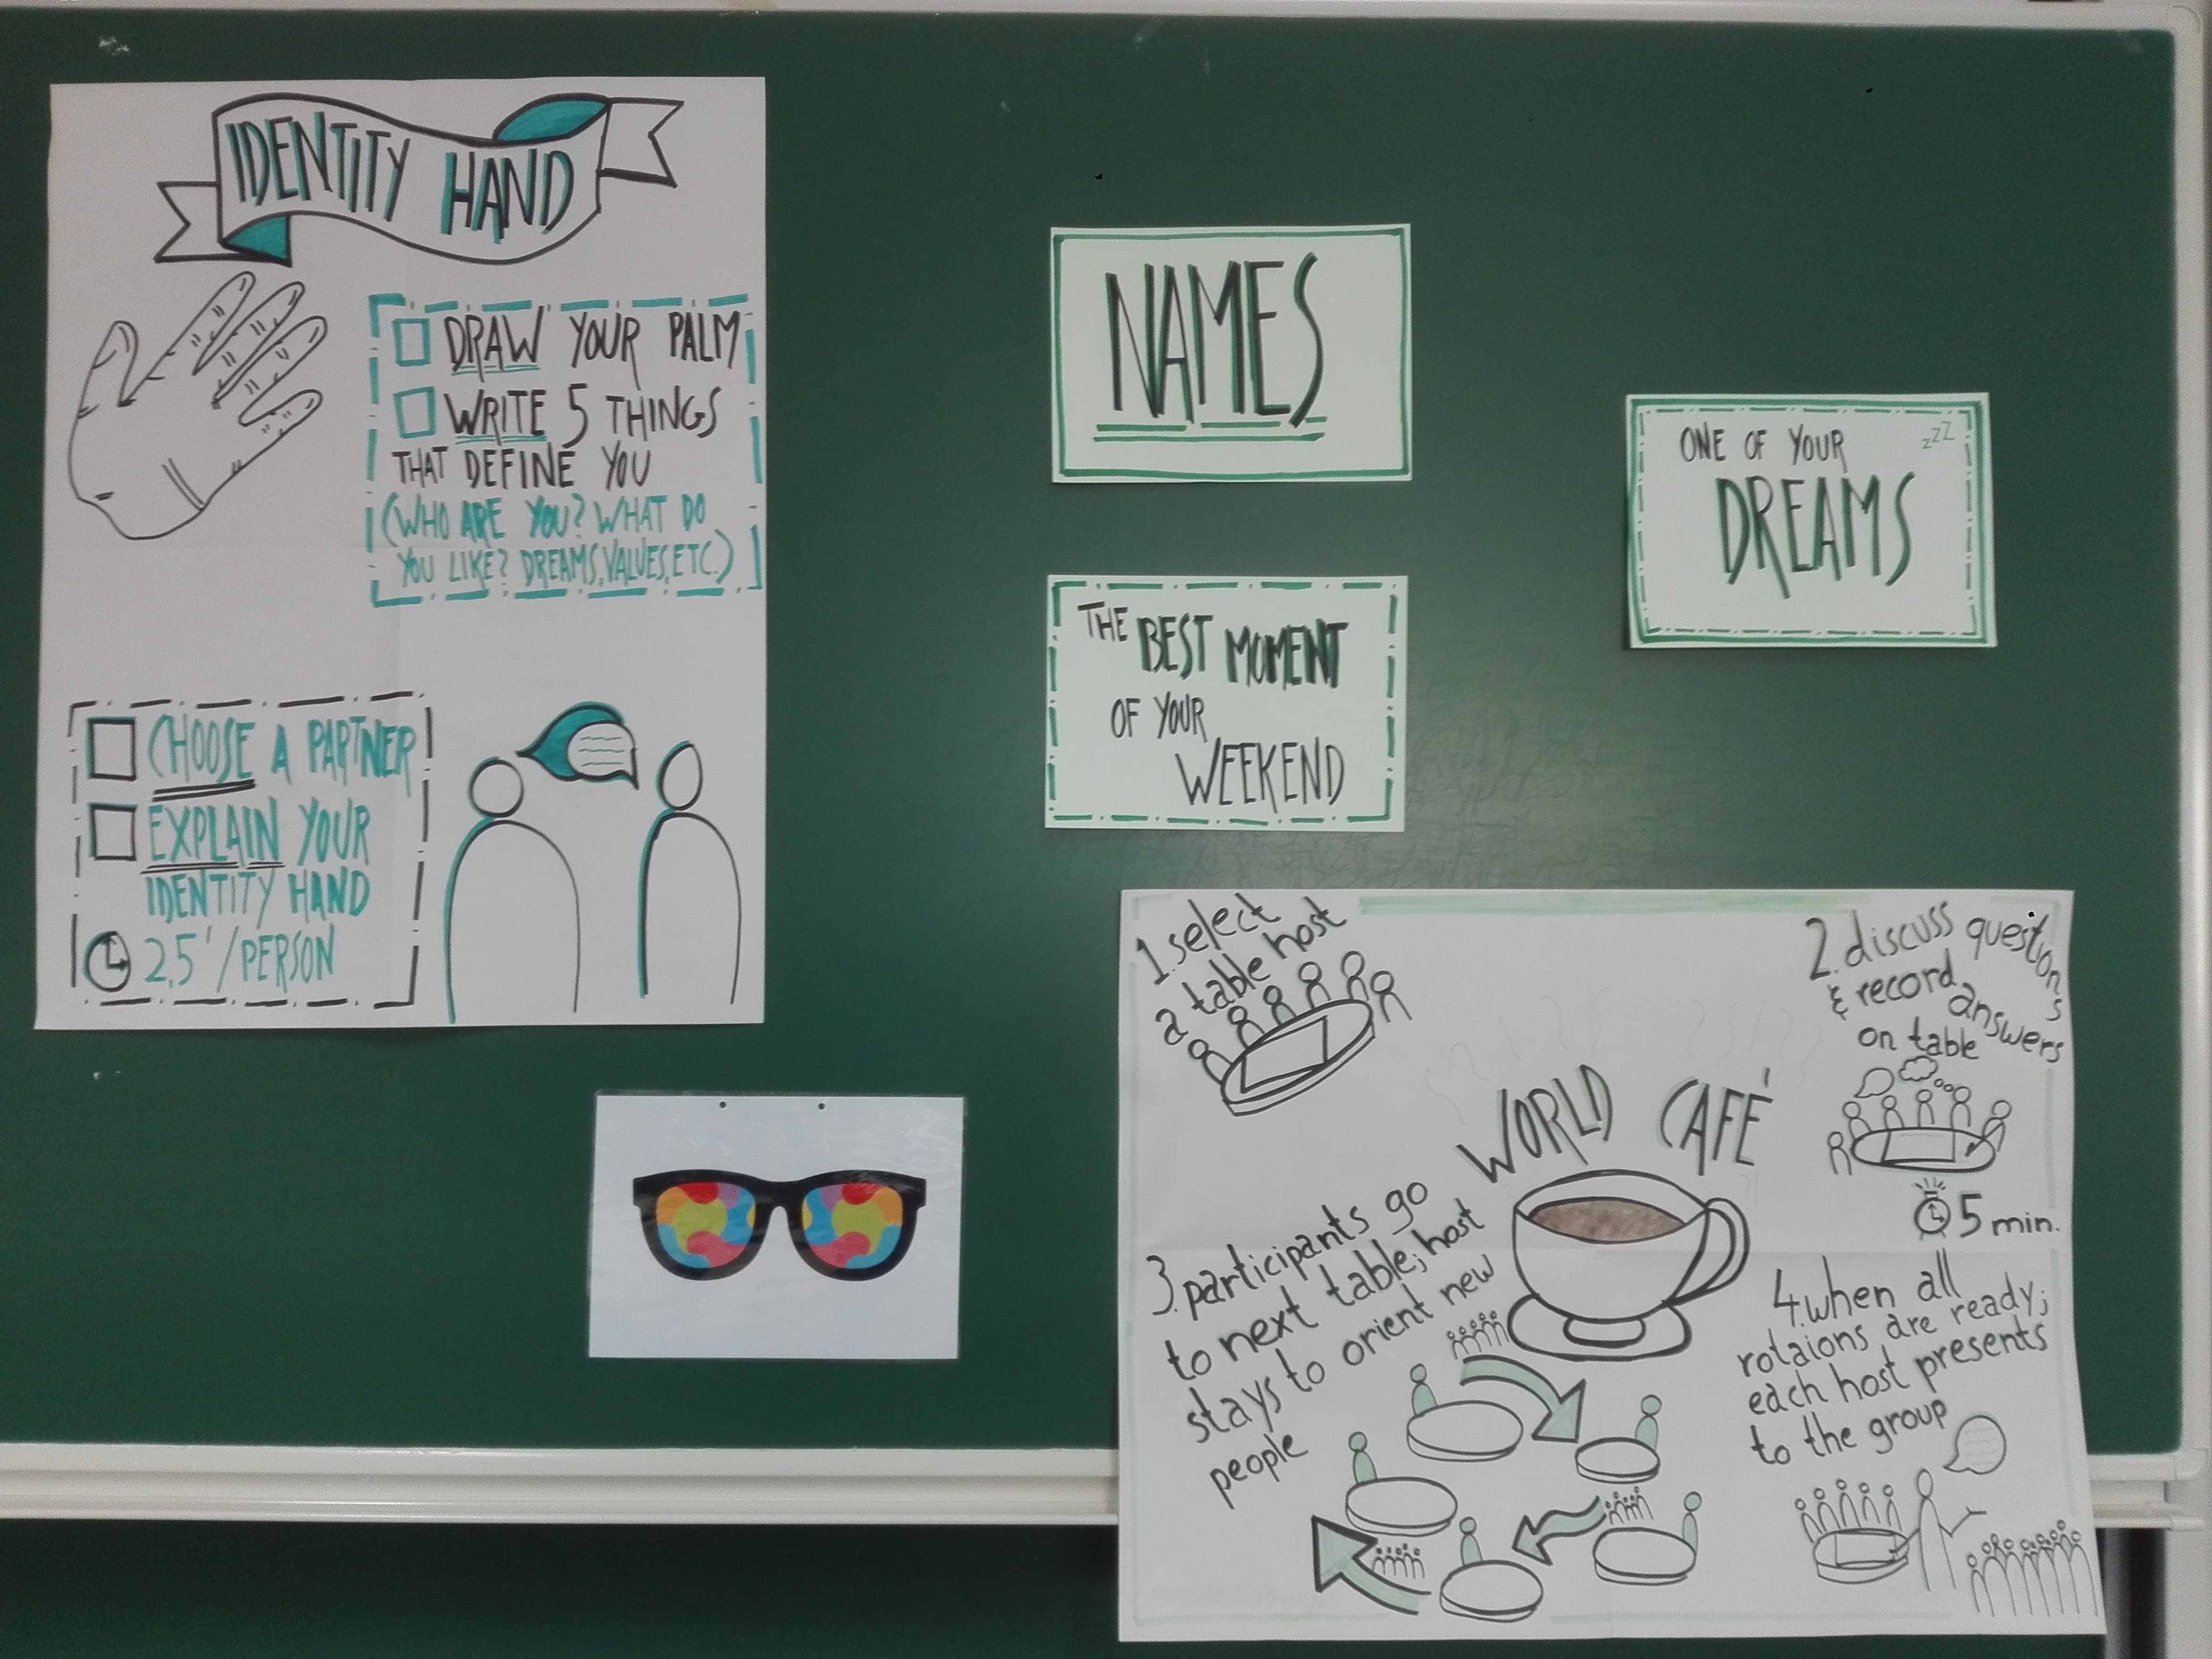 IDENTITY HAND
DRAW YOUR PALM
WRITE 5 THINGS
THAT DEFINE YOU
(WHO ARE YOU? WHAT DO
YOU LIKE? DREAMS, VALUES, ETC.)
CHOOSE A PARTNER
EXPLAIN YOUR
IDENTITY HAND
2,5'/PERSON
NAMES
THE BEST MOMENT
OF YOUR
WEEKEND
ONE OF YOUR
zzZ
DREAMS
WORLD CAFÉ
1. select
a table host
2. discuss questions
& record answers
on table
5 min.
3. participants go
to next table; host
stays to orient new
people
4. when all
rotaions are ready;
each host presents
to the group